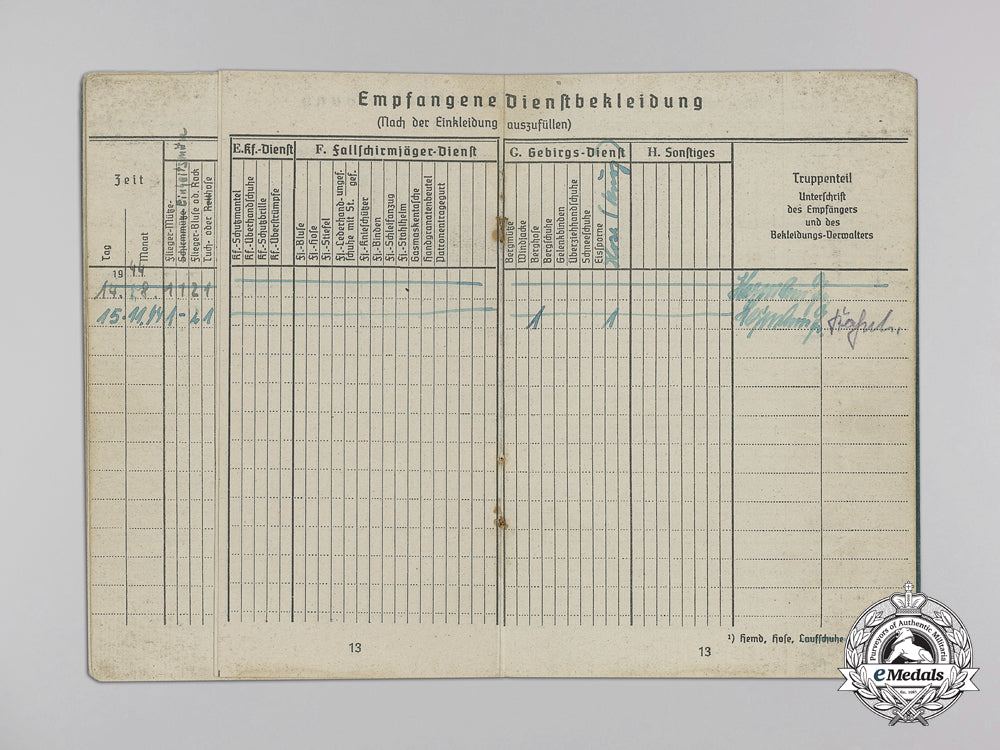 Empfangene Dienstbekleidung
(Nach der Einkleidung auszufüllen)
Zeit
Tag
Monat
Flieger-Mütze
Schiemmütze Einheitsmütze
Flieger-Bluse od. Rock
Tuch- oder Reithose
E. Kf.-Dienst
Kf.-Schutzmantel
Kf.-Überhandschuhe
Kf.-Schutzbrille
Kf.-Überstrümpfe
F. Fallschirmjäger-Dienst
Fl.-Bluse
Fl.-Hose
Fl.-Stiefel
Fl.-Lederhand- ungef.
schuhe mit St. gef.
Fl.-Knieschützer
Fl.-Binden
Fl.-Schleifanzug
Fl.-Stahlhelm
Gasmaskentasche
Handgranatenbeutel
Patronentragegurt
G. Gebirgs-Dienst
Bergmütze
Windjacke
Berghose
Bergschuhe
Gelenkbinden
Überziehhandschuhe
Schneeschuhe
Eissporne
H. Sonstiges
Truppenteil
Unterschrift
des Empfängers
und des
Bekleidungs-Verwalters
1944
14. 8. 1 1 2 1
15. 11. 44 1 - 2 1 1 1
13
13
¹) Hemd, Hose, Laufschuhe
Purveyors of Authentic Militaria
eMedals